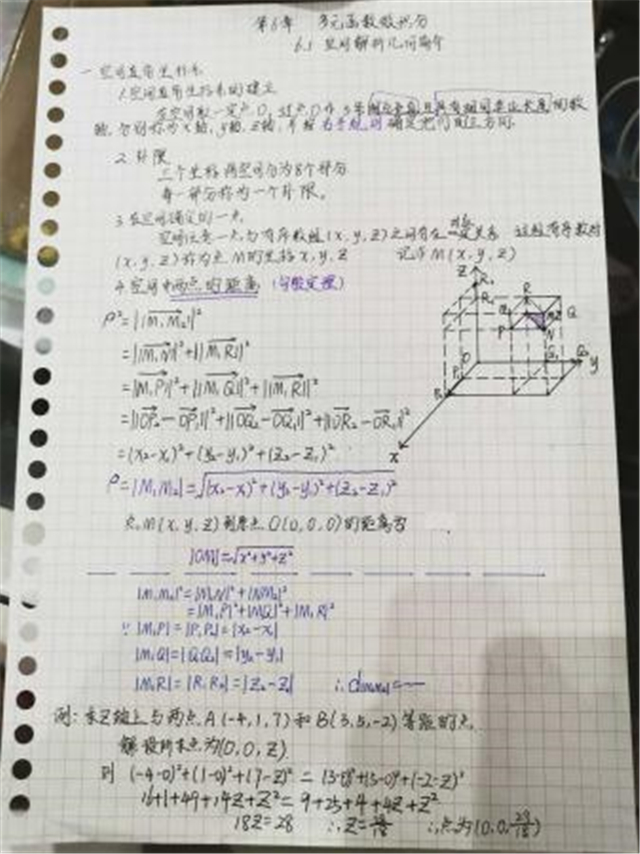 第6章 多元函数微积分
6.1 空间解析几何简介
一 空间直角坐标系
1.空间直角坐标系的建立
在空间取一定点O,过点O作3条相互垂直且具有相同单位长度的数
轴,分别称为x轴,y轴,z轴,并按右手规则确定它们的正方向.
2.卦限
三个坐标 空间分为8个部分
每一部分称为一个卦限。
3.在空间确定的一点
空间任意一点与有序数组(x,y,z)之间存在一一对应关系 这组有序数对
(x,y,z)称为点M的坐标x,y,z 记作M(x,y,z)
4.空间中两点的距离 (勾股定理)
ρ²=||M₁M₂||²
=||M₁N||²+||M₁R||²
=||M₁P||²+||M₁Q||²+||M₁R||²
=||OP₂-OP₁||²+||OQ₂-OQ₁||²+||OR₂-OR₁||²
=(x₂-x₁)²+(y₂-y₁)²+(z₂-z₁)²
ρ=|M₁M₂|=√(x₂-x₁)²+(y₂-y₁)²+(z₂-z₁)²
点M(x,y,z)到原点O(0,0,0)的距离为
|OM|=√x²+y²+z²
|M₁M₂|²=|M₁N|²+|NM₂|²
=|M₁P|²+|M₁Q|²+|M₁R|²
∵|M₁P|=|P₁P₂|=|x₂-x₁|
|M₁Q|=|Q₁Q₂|=|y₂-y₁|
|M₁R|=|R₁R₂|=|z₂-z₁|
例:求Z轴上与两点A(-4,1,7)和B(3,5,-2)等距的点.
解 设所求点为(0,0,z)
则 (-4-0)²+(1-0)²+(7-z)²=(3-0)²+(5-0)²+(-2-z)²
16+1+49+14z+z²=9+25+4+4z+z²
18z=28